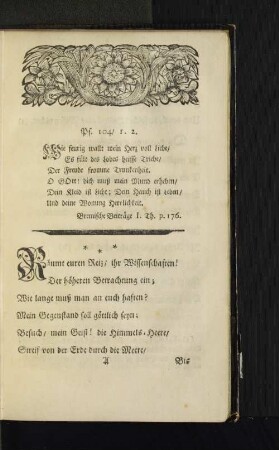 Ps. 104/ 1. 2.
Wie feurig wallt mein Herz voll Liebe/
Es fült des Lobes heisse Triebe/
Der Freude fromme Trunkenheit.
O GOtt! dich muß mein Mund erheben/
Dein Kleid ist Licht; Dein Hauch ist Leben/
Und deine Wonung Herrlichkeit.
Bremische Beiträge I. Th. p. 176.
* * *
Räumt euren Reiz/ ihr Wissenschaften!
Der höheren Betrachtung ein;
Wie lange muß man an euch haften?
Mein Gegenstand soll göttlich seyn:
Besuch/ mein Geist! die Himmels-Heere/
Streif von der Erde durch die Meere/
A Bis